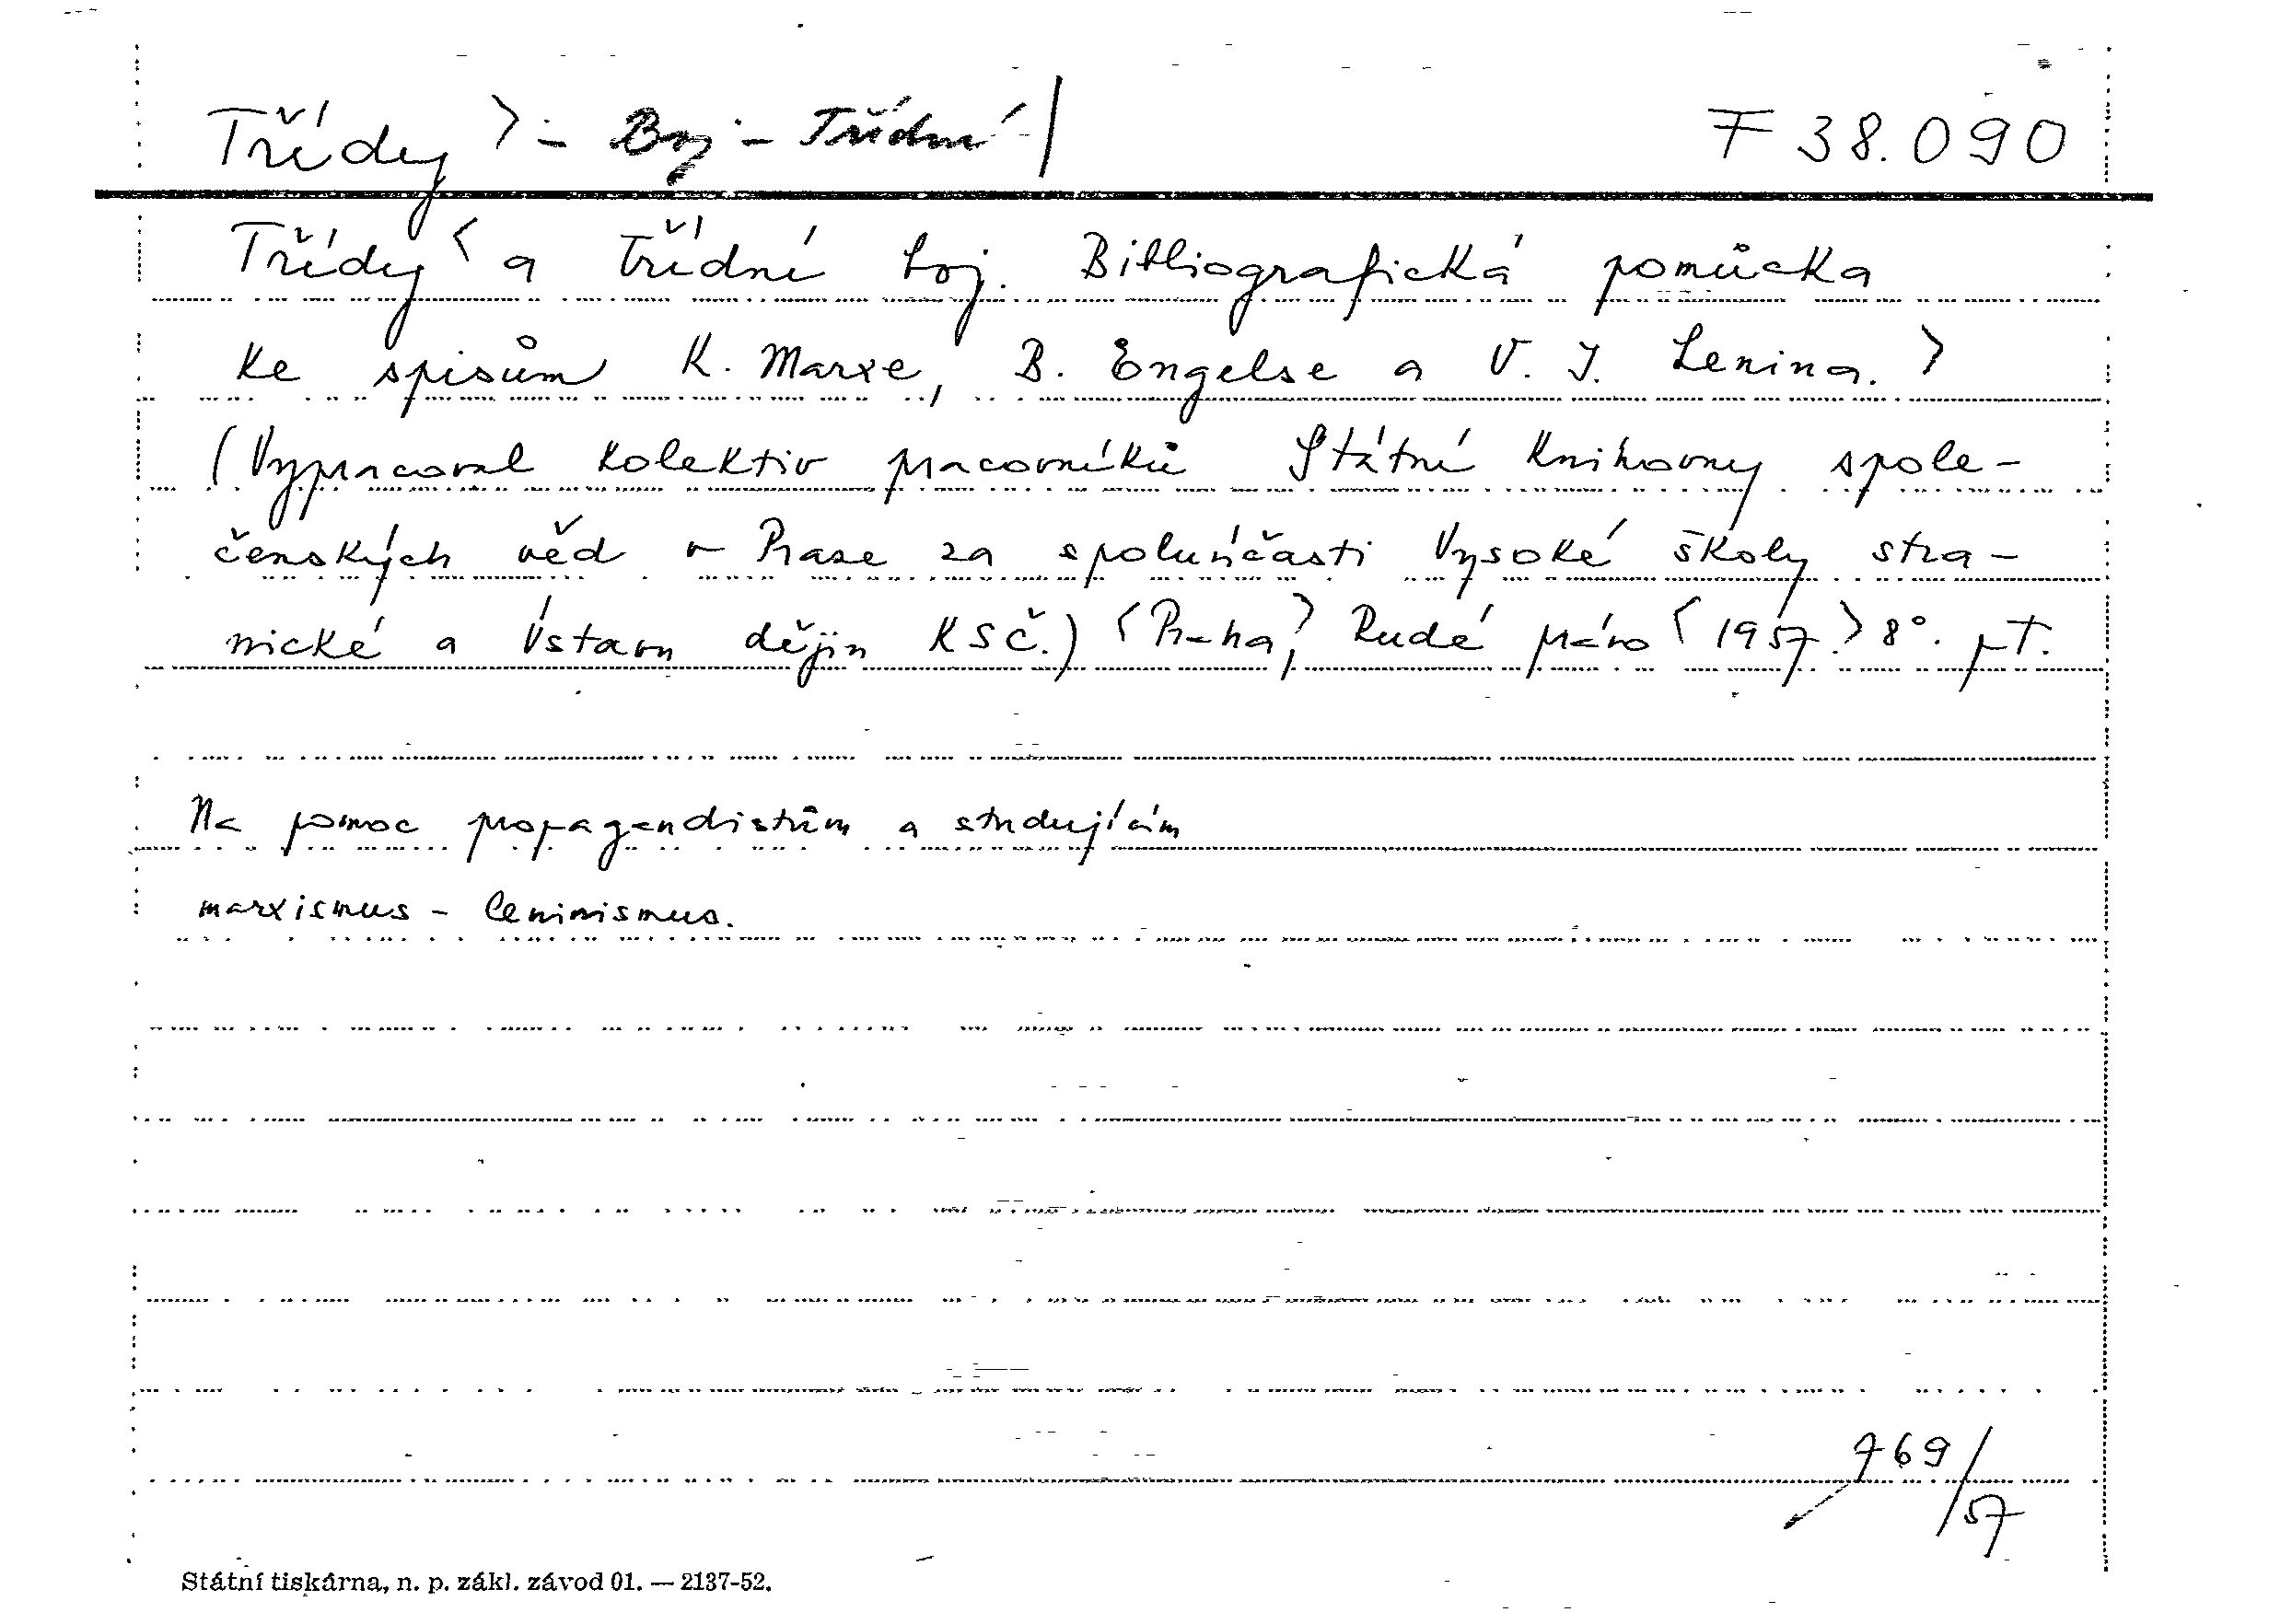 Třídy > - Boj - Třídní /
F 38.090
Třídy < a třídní boj. Bibliografická pomůcka
ke spisům K. Marxe, B. Engelse a V. I. Lenina. >
(Vypracoval kolektiv pracovníků Státní knihovny spole-
čenských věd v Praze za spoluúčasti Vysoké školy stra-
nické a Ústavu dějin KSČ.) <Praha,> Rudé právo <1957.> 8°. pT.
Na pomoc propagandistům a studujícím
marxismus - leninismus.
769/57
Státní tiskárna, n. p. zákl. závod 01. — 2137-52.